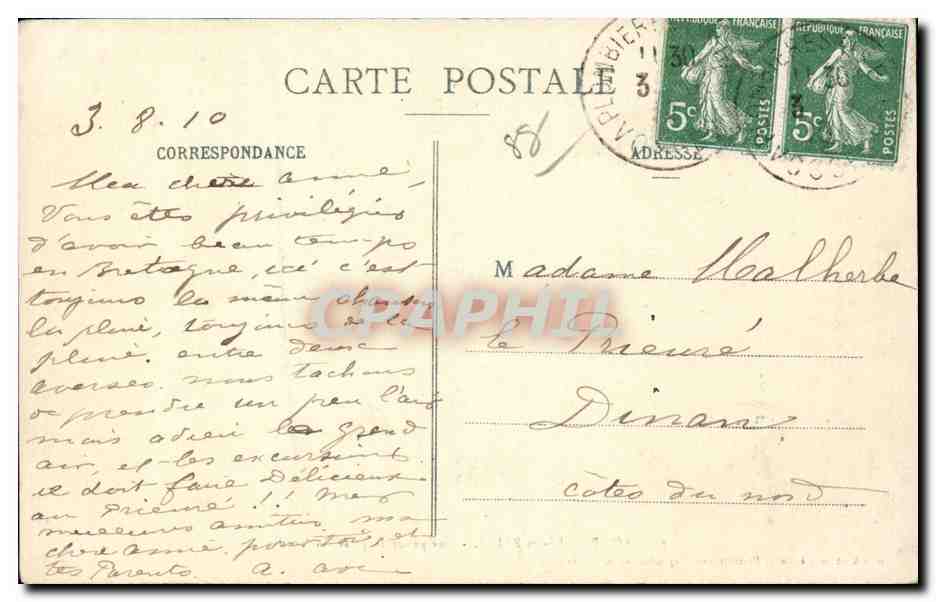 CARTE POSTALE
3.8.10
88
CORRESPONDANCE
ADRESSE
REPUBLIQUE FRANÇAISE
5c
POSTES
REPUBLIQUE FRANÇAISE
5c
POSTES
PLOMBIERES
11 30
3
Ma chère amie,
Vous êtes privilégiés
d'avoir beau temps
en Bretagne, ici c'est
toujours la même chanson
la pluie, toujours de la
pluie. entre deux
averses nous tachons
de prendre un peu l'air
mais adieu le grand
air, et les excursions.
il doit faire Délicieux
au Prieuré !! Mes
meilleurs amitiés ma
chère amie pour toi, et
tes Parents. A.
Madame Malherbe
le Prieuré
Dinan
côtes du nord
CPAPHIL